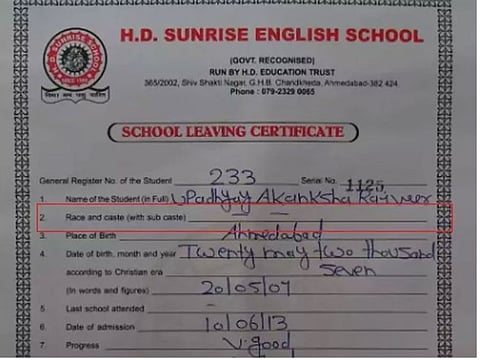 H.D. SUNRISE ENGLISH SCHOOL
(GOVT. RECOGNISED)
RUN BY H.D. EDUCATION TRUST
365/2002, Shiv Shakti Nagar, G.H.B. Chandkheda, Ahmedabad-382 424.
Phone : 079-2329 0065
SCHOOL LEAVING CERTIFICATE
General Register No. of the Student 233 Serial No. 1125
1. Name of the Student (in Full) Upadhyay Akanksha
2. Race and caste (with sub caste) — —
3. Place of Birth Ahmedabad
4. Date of birth, month and year Twenty may two thousand
according to Christian era seven
(In words and figures) 20/05/07
5. Last school attended -
6. Date of admission 10/06/13
7. Progress V. good